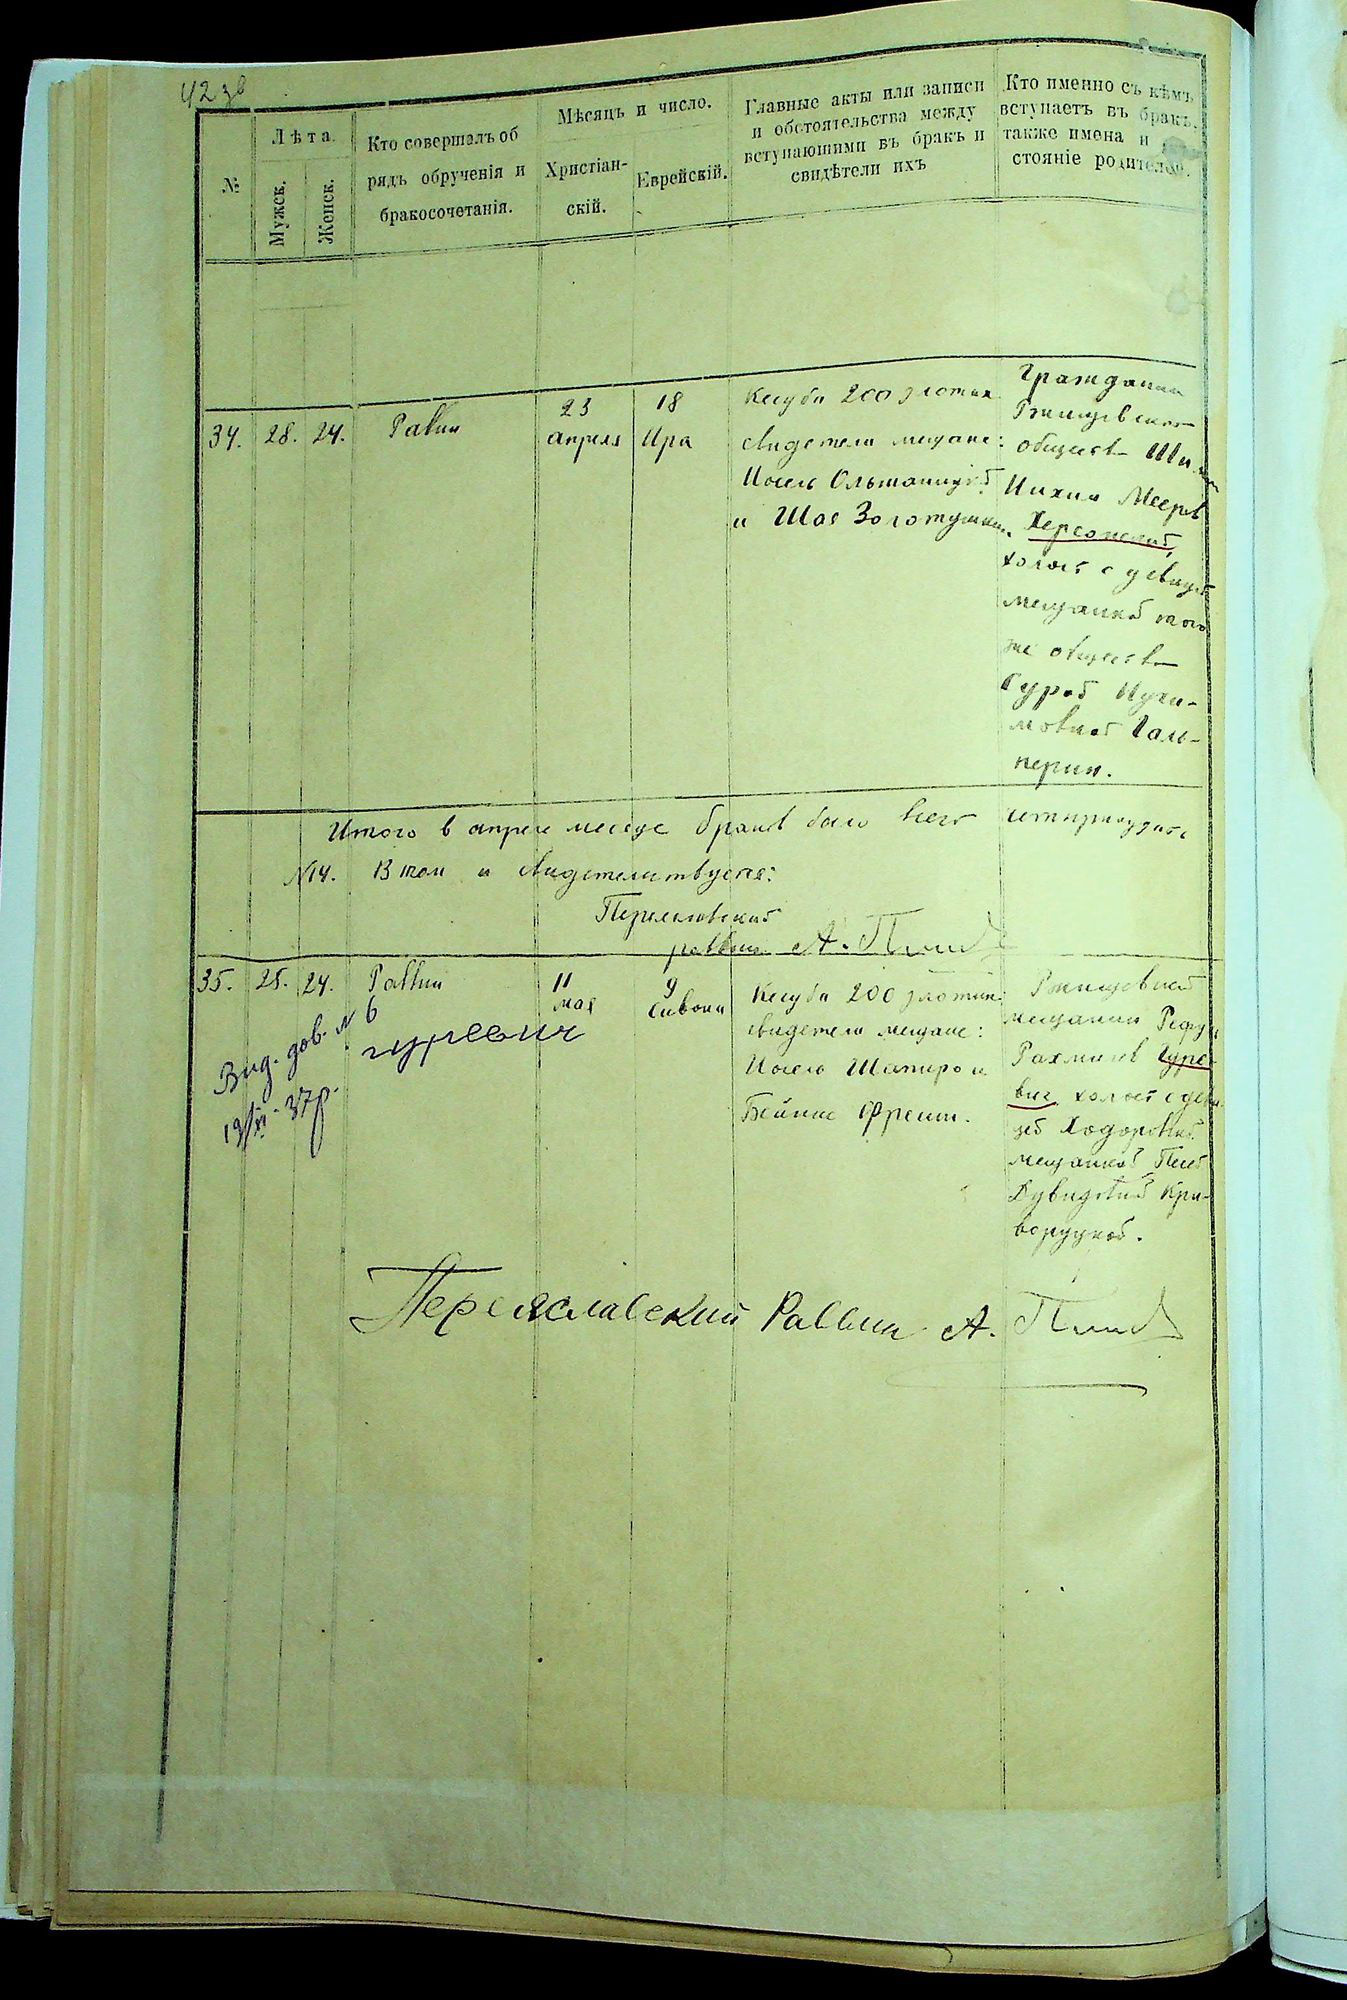 42 зв
№
Лѣта.
Мужск.
Женск.
Кто совершалъ об
рядъ обрученія и
бракосочетанія.
Мѣсяцъ и число.
Христіан-
скій.
Еврейскій.
Главные акты или записи
и обстоятельства между
вступающими въ бракъ и
свидѣтели ихъ
Кто именно съ кѣмъ
вступаетъ въ бракъ,
также имена и
стояніе родителей.
34. 28. 24. Равин
23
апреля
18
Ира
Кесуба 200 злотих
свидетели мещане:
Иосель Ольшаницкий
и Шая Золотушкин.
Гражданин
Ржищевского
общества
Нихим Мееров
Херсонский,
холост с девицей
мещанкой того
же общества
Сурой Нухи-
мовной Галь-
перин.
Итого в апреле месяце браков было всего четырнадцать
№14. В том и свидетельствуется:
Переяславский
раввин А.
35. 25. 24. Раввин
11
мая
9
Сивона
Кесуба 200 злотих
свидетели мещане:
Иосель Шапиро и
Бейниш
Ржищевский
мещанин
Рахмилев Гуре-
вич, холост с деви-
цей Ходоровской
мещанкой Песей
Дувидовной Кри-
воруцкой.
Вид. дов. № 6
гуревич
19/XI-37р.
Переяславский Раввин А.